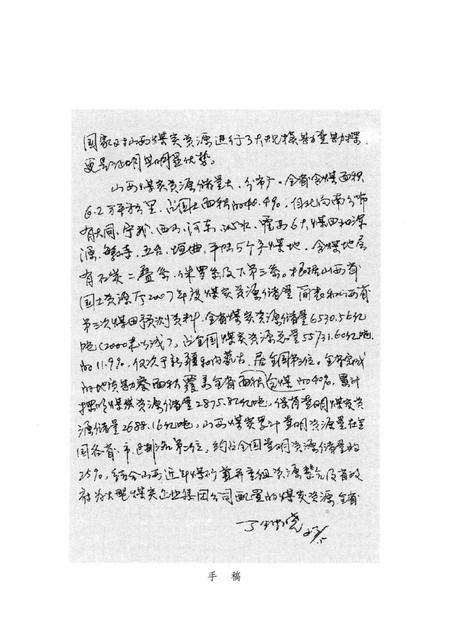 国家又对山西煤炭资源进行了大规模普查勘探，
更是证明其明显优势。
山西煤炭资源储量大、分布广。全省含煤面积
6.2万平方公里，占国土面积的40.4%，自北向南分布
有大同、宁武、西山、河东、沁水、霍西6大煤田和浑
源、繁峙、五台、垣曲、平陆5个产煤地。含煤地层
有石炭二叠系、侏罗系及下第三系。根据山西省
国土资源厅2007年度煤炭资源储量简表和山西省
第三次煤田预测资料，全省煤炭资源储量6530.56亿
吨(2000米以浅)，占全国煤炭资源总量55731.60亿吨
的11.9%，仅次于新疆和内蒙古，居全国第三位。全省完成
的地质勘查面积覆盖全省面积含煤的40%，累计
探明煤炭资源储量2875.82亿吨，保有查明煤炭资
源储量2688.16亿吨，山西煤炭累计查明资源量在全
国各省、市、区排位第二位，约占全国查明资源储量的
25%，结合山西近年煤矿兼并重组资源整合及省政
府为大型煤炭企业集团公司配置的煤炭资源，全省
手 稿